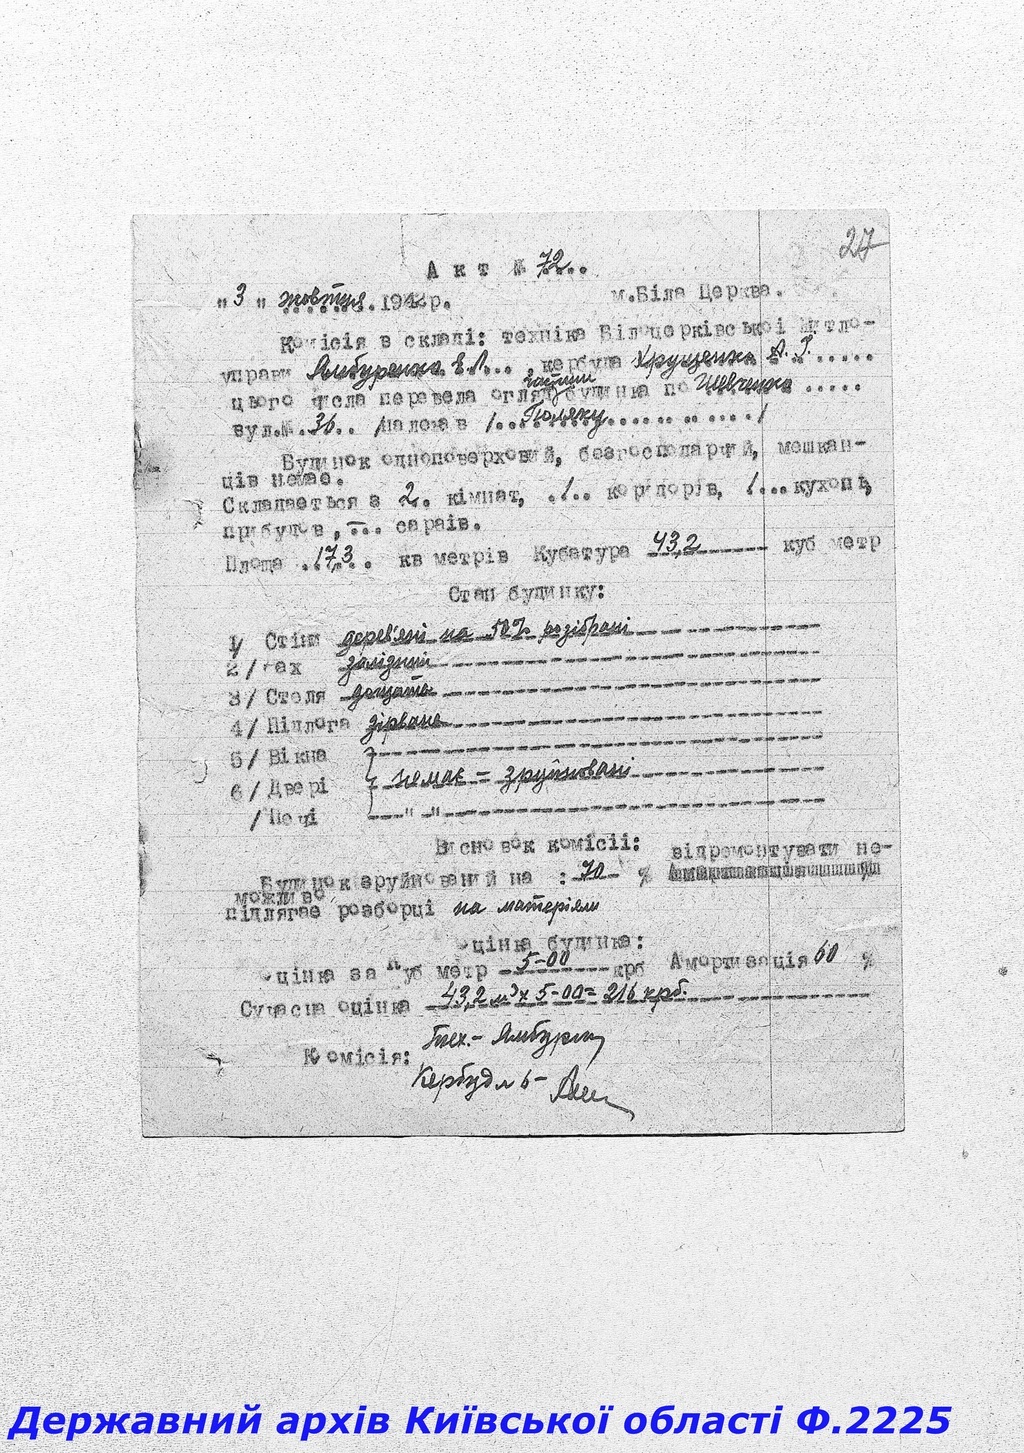 27
Акт № 72..
"3" жовтця.1942р. м.Біла Церква.
Комісія в складі: техніка Білоцерківської Житло-
управи Ямбуренко Е.Л..., кербуда Хрущенко А. Г.....
частини
цього числа перевела огляд будинка по Шевченка .....
вул.№.36.. /належав /...Поляку......../
Будинок одноповерховий, безгосподарчий, мешкан-
ців немає.
Складається з 2.. кімнат, .1.. коридорів, 1...кухонь,
прибудов, —... сараїв.
Площа .17,3.. кв метрів Кубатура 43,2 куб метр
Стан будинку:
1/ Стіни дерев'яні на 50% розібрані
2/ Дах залізний
3/ Стеля дощата
4/ Підлога зірвана
5/ Вікна
6/ Двері немає = зруйновані
/Печі —"—"—
Висновок комісії: відремонтувати не-
Будинок зруйнований на : 70 %
можливо
підлягає розборці на матеріяли
Оцінка будинка:
Оцінка за куб метр 5-00 крб Амортизація 60 %
Сучасна оцінка 43,2 м³ х 5-00= 216 крб.
Комісія: Тех.-
Кербудль-
Державний архів Київської області Ф.2225